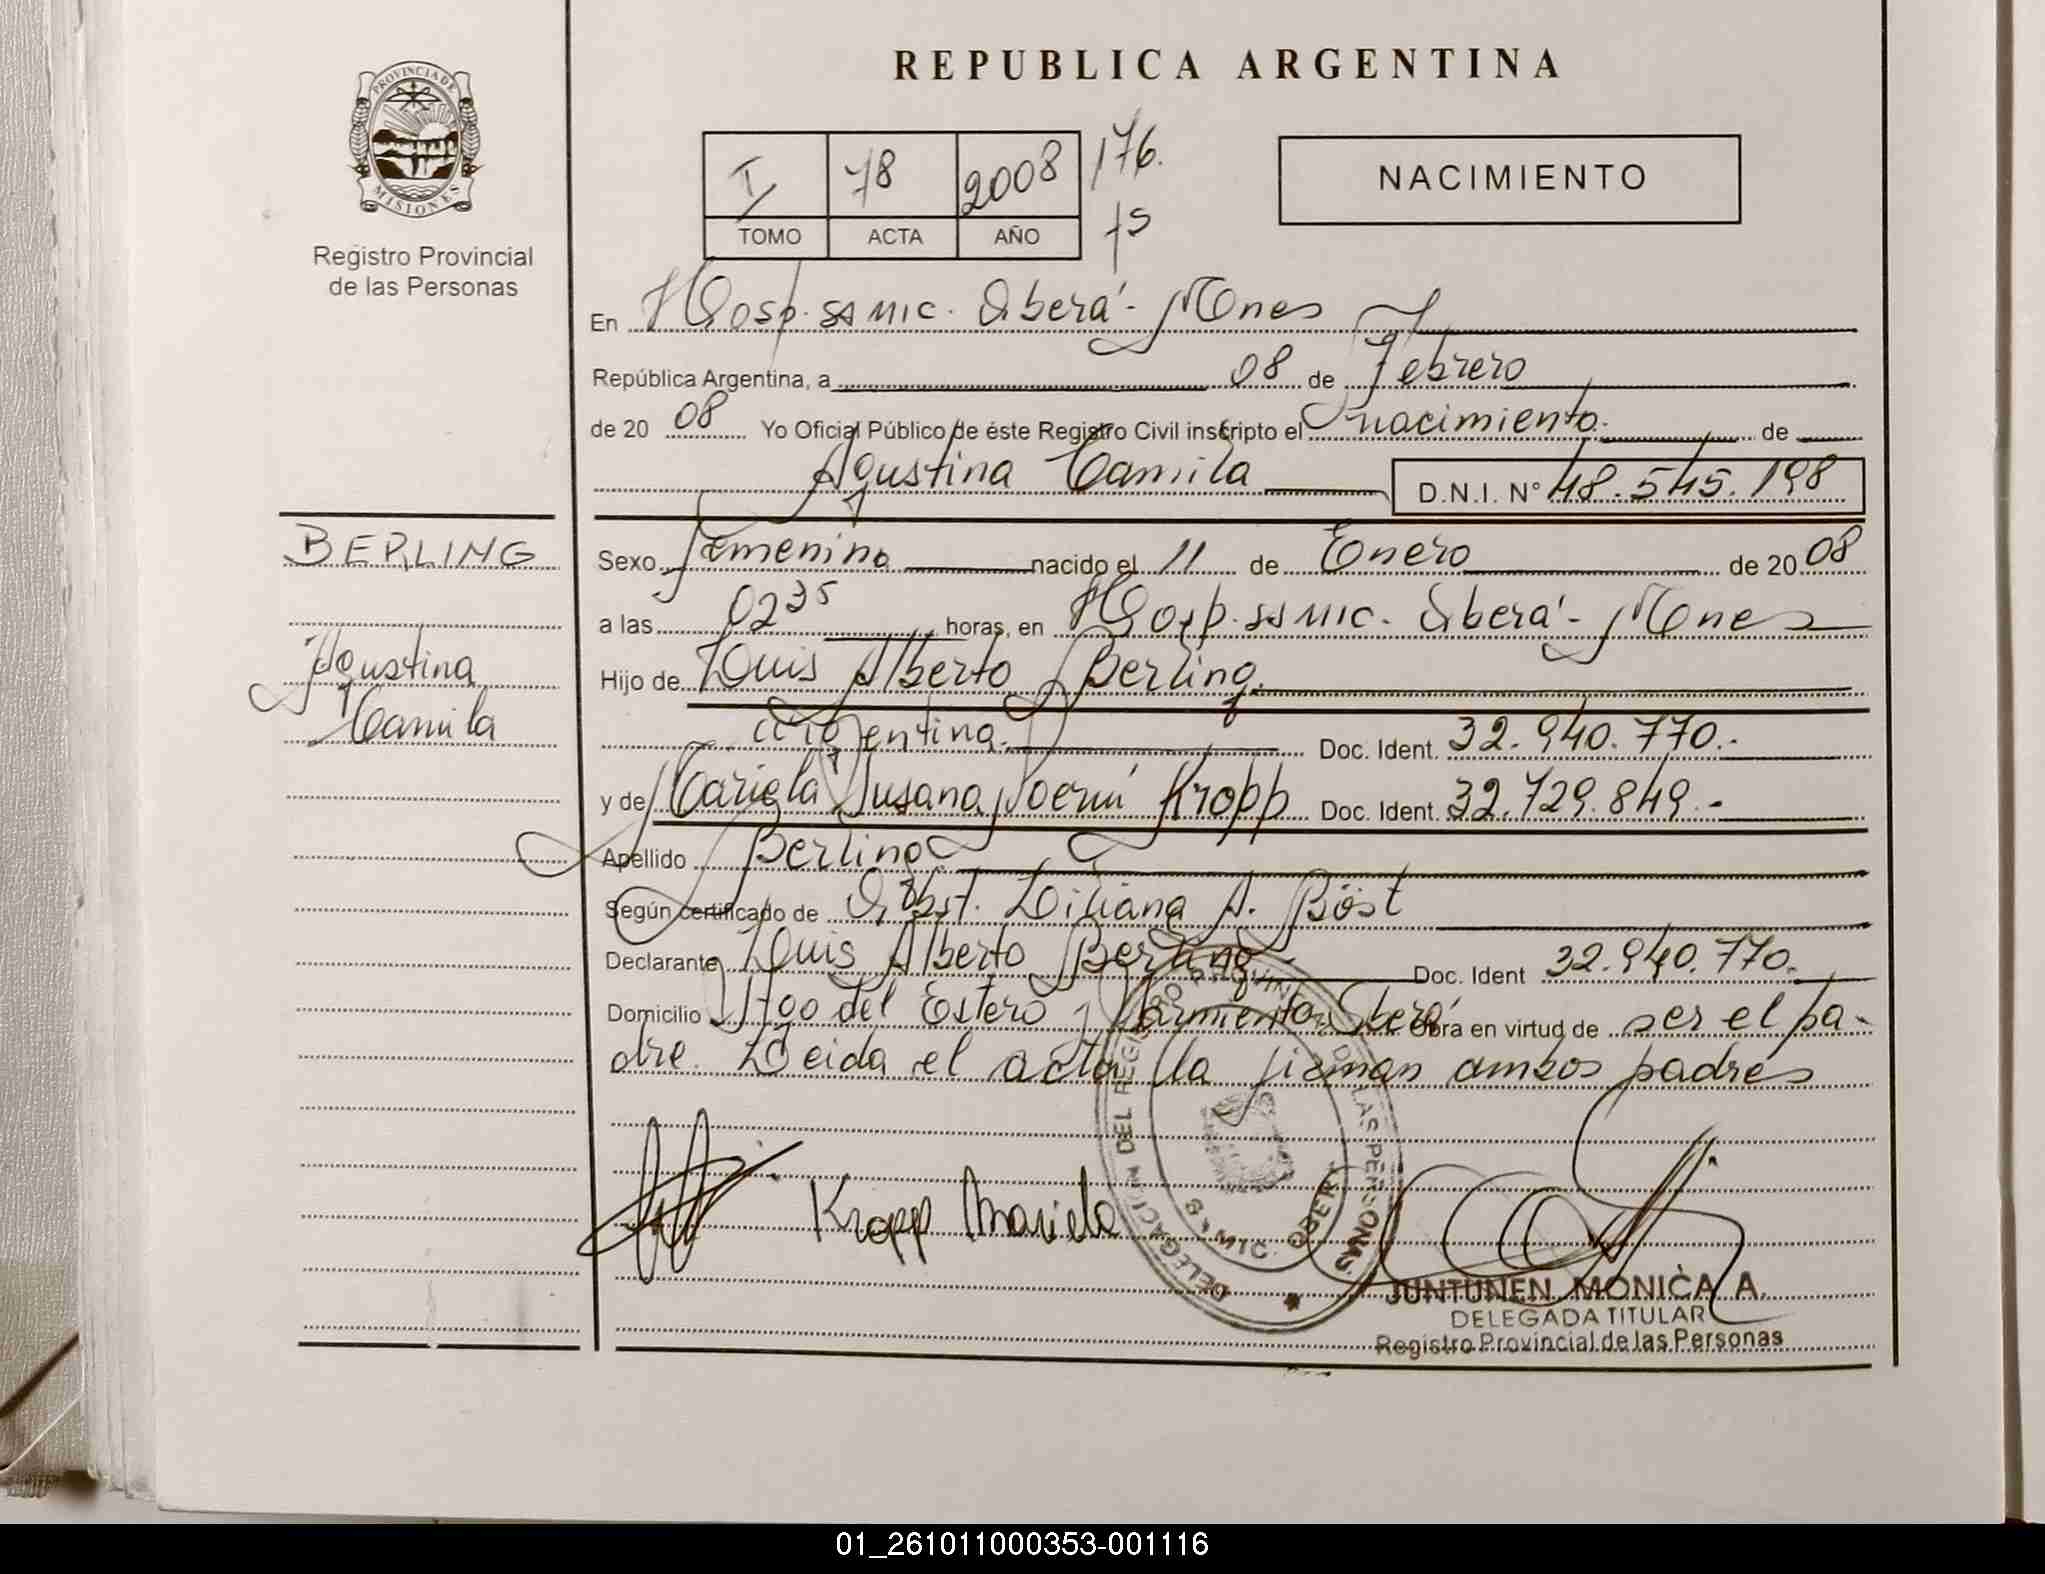 REPUBLICA ARGENTINA
PROVINCIA DE
MISIONES
Registro Provincial
de las Personas
I 78 2008 176.
TOMO ACTA AÑO fs
NACIMIENTO
En Hosp. ss mic. Oberá - Mnes
República Argentina, a 08 de Febrero
de 20 08 Yo Oficial Público de éste Registro Civil inscripto el nacimiento. de
Agustina Camila D.N.I. N° 48.545.198
BERLING
Agustina
Camila
Sexo femenino nacido el 11 de Enero de 20 08
a las 02 35 horas, en Hosp. ss mic. Oberá - Mnes
Hijo de Luis Alberto Berling.
argentina. Doc. Ident. 32.940.770.-
y de Mariela Susana Noemí Kropp Doc. Ident. 32.729.849.-
Apellido Berling
Según certificado de Obst. Liliana A. Böst
Declarante Luis Alberto Berling. Doc. Ident 32.940.770.
Domicilio Stgo del Estero y Sarmiento Oberá Obra en virtud de ser el pa-
dre. Leida el acta la firman ambos padres
Kropp Mariela
DELEGACION DEL REGISTRO PROVINCIAL DE LAS PERSONAS
MIC. OBERA
JUNTUNEN MONICA A.
DELEGADA TITULAR
Registro Provincial de las Personas
01_261011000353-001116